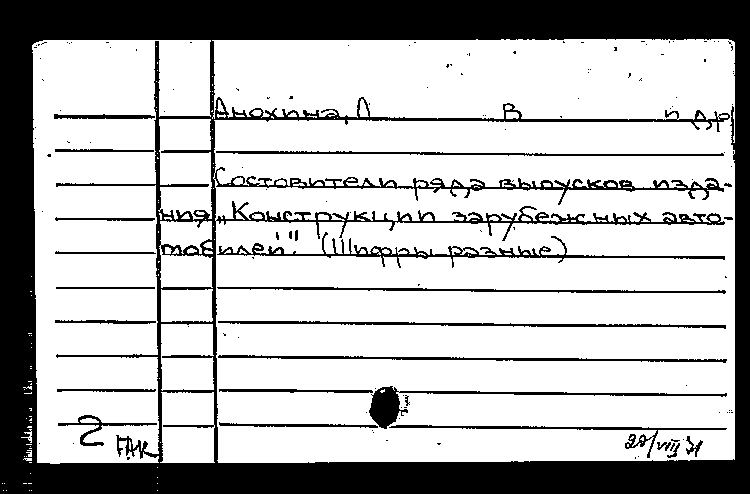 Анохина, Л В и др
Состовители ряда выпусков изда-
ния „Конструкции зарубежных авто-
мобилей". (Шифры разные)
2 ГАК 27/VIII 71